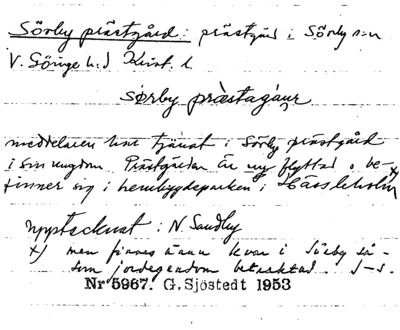 Sörby prästgård: prästgård i Sörby sn
V. Göinge h:d Krist. l.
sørby præstagåar
meddelaren har tjänat i Sörby prästgård
i sin ungdom Prästgården är ny flyttad o. be-
finner sig i hembygdsparken i Hässleholm x)
upptecknat i N. Sandby
x) men finnes ännu kvar i Sörby så-
som jordegendom betraktad. S-s.
Nr 5967. G. Sjöstedt 1953